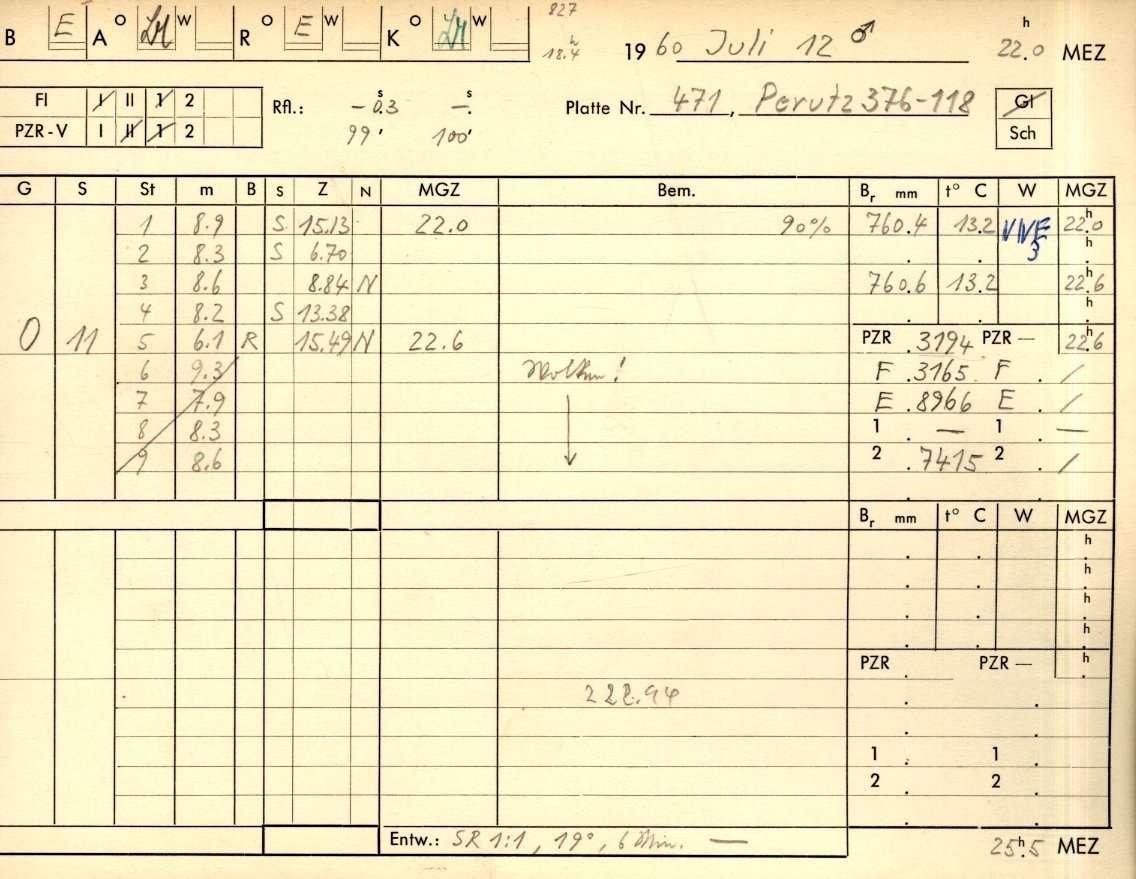 827
B E A O W R O E W K O W
18.4 h
1960 Juli 12 ♂ 22.0 h MEZ
FI I II 1 2
PZR-V I II 1 2
Rfl.: – 0.3 s –. s
99' 100'
Platte Nr. 471, Perutz 376-118
Gl
Sch
G S St m B S Z N MGZ Bem. Br mm t° C W MGZ
1 8.9 S 15.13 22.0 90% 760.4 13.2 22.0 h
2 8.3 S 6.70 3 h
3 8.6 8.84 N 760.6 13.2 22.6 h
4 8.2 S 13.38 h
0 11 5 6.1 R 15.49 N 22.6 PZR .3194 PZR – 22.6 h
6 9.3 Wolken! F .3165 F . /
7 7.9 E .8966 E . /
8 8.3 1 . — 1 . —
9 8.6 2 .7415 2 . /
Br mm t° C W MGZ
h
h
h
h
PZR . PZR – h
222.94
1 . 1 .
2 . 2 .
Entw.: SR 1:1, 19°, 6 Min. —
25.5 h MEZ